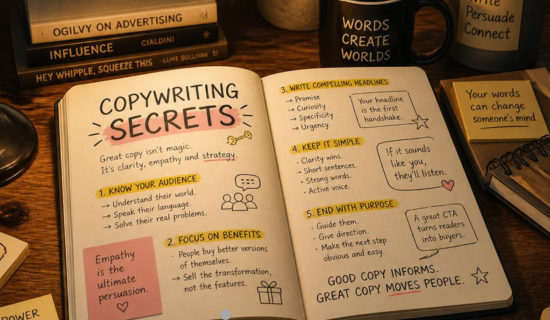 OGILVY ON ADVERTISING
INFLUENCE CIALDINI
HEY WHIPPLE, SQUEEZE THIS LUKE SULLIVAN
WORDS
CREATE
WORLDS
Write
Persuade
Connect
Your words
can change
someone's mind.
COPYWRITING
SECRETS
Great copy isn't magic.
It's clarity, empathy and strategy.
1. KNOW YOUR AUDIENCE
→ Understand their world.
→ Speak their language.
→ Solve their real problems.
Empathy
is the
ultimate
persuasion.
2. FOCUS ON BENEFITS
· People buy better versions
of themselves.
→ Sell the transformation,
not the features.
3. WRITE COMPELLING HEADLINES
→ Promise
→ Curiosity
→ Specificity
→ Urgency
Your headline
is the first
handshake.
4. KEEP IT SIMPLE
· Clarity wins.
· Short sentences.
· Strong words.
· Active voice.
If it sounds
like you,
they'll listen.
5. END WITH PURPOSE
· Guide them.
· Give direction.
· Make the next step
obvious and easy.
A great CTA
turns readers
into buyers.
GOOD COPY INFORMS.
GREAT COPY MOVES PEOPLE.
POWER